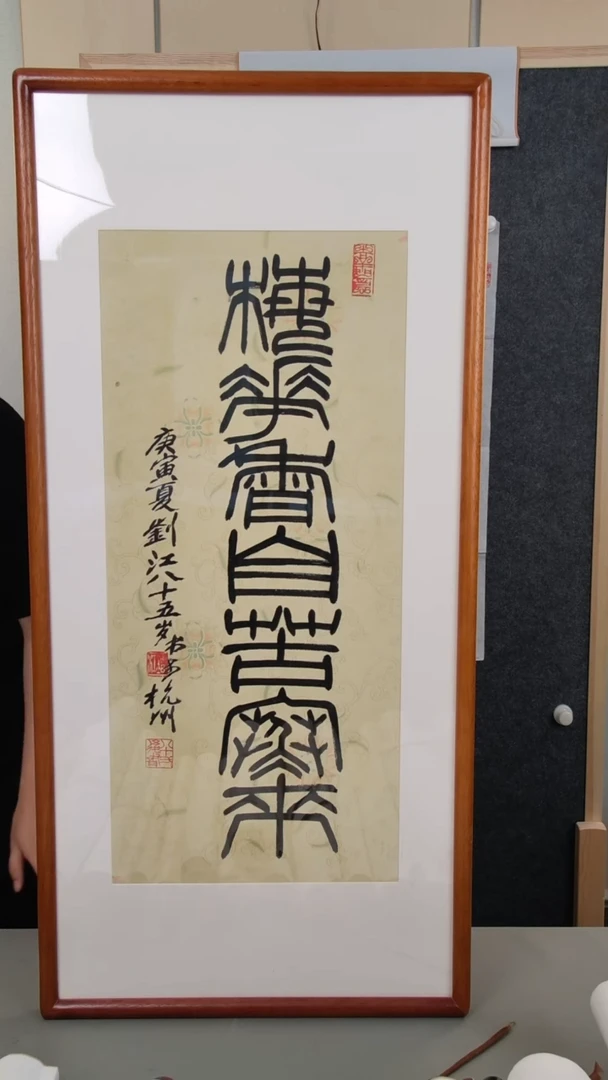 梅華香自苦寒來
庚寅夏劉江八十五岁书于杭州